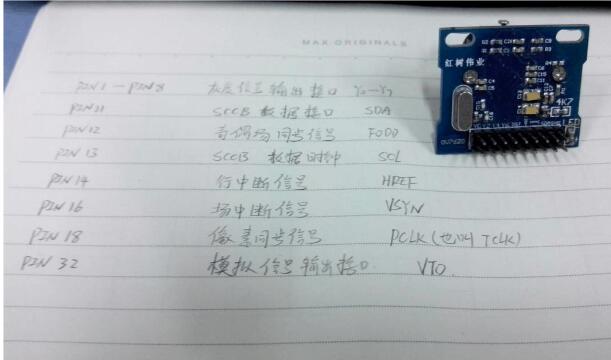 MAX.ORIGINALS
红树伟业
4K7
OV7620
PIN1-PIN8 灰度信号输出接口 Y0-Y7
PIN11 SCCB 数据接口 SDA
PIN12 奇偶场同步信号 FODD
PIN13 SCCB 数据时钟 SCL
PIN14 行中断信号 HREF
PIN16 场中断信号 VSYN
PIN18 像素同步信号 PCLK(也叫TCLK)
PIN32 模拟信号输出接口 VTO